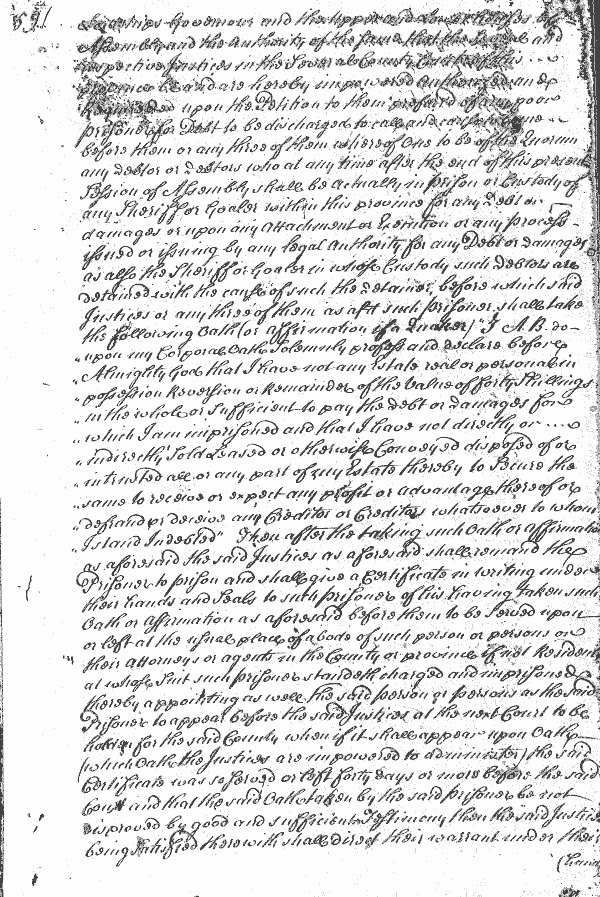 591
Lordships Governour and the Upper and Lower Houses of
Assembly and the Authority of the same that the several and
respective Justices in the Several County Courts of this
province be and are hereby impowered Authorized and
Required upon the Petition to them preferred of any poor
prisoner for Debt to be discharged to call and cause to come
before them or any three of them whereof One to be of the Quorum
any debtor or debtors who at any time after the end of this present
Session of Assembly shall be actually in prison or Custody of
any Sheriff or Goaler within this province for any Debt or
damages or upon any attachment or Execution or any process
issued or issuing by any legal Authority for any Debt or damages
as also the Sheriff or Goaler in whose Custody such Debtors are
detained with the cause of such the detainer before which said
Justices or any three of them as afd such prisoner shall take
the following Oath (or affirmation if a Quaker) I A. B. do
"upon my Corporal Oath Solemnly profess and declare before
"Almighty God that I have not any Estate real or personal in
"possession Reversion or Remainder of the Value of forty Shillings
"in the whole or sufficient to pay the debt or damages for
"which I am imprisoned and that I have not directly or
"indirectly Sold Leased or otherwise Conveyed disposed of or
"intrusted all or any part of my Estate thereby to Secure the
"same to receive or expect any profit or advantage thereof or
"defraud or deceive any Creditor or Creditors whatsoever to whom
"I stand Indebted" Then after the taking such Oath or affirmation
as aforesaid the said Justices as aforesaid shall remand the
Prisoner to prison and shall give a Certificate in writing under
their hands and Seals to such prisoner of his having taken such
Oath or affirmation as aforesaid before them to be Served upon
or left at the usual place of abode of such person or persons or
their attorneys or agents in the County or province if not Resident
at whose Suit such prisoner standeth charged and imprisoned
thereby appointing as well the said person or persons as the said
Prisoner to appear before the said Justices at the next Court to be
holden for the said County when if it shall appear upon Oath
(which Oath the Justices are impowered to administer) the said
Certificate was so served or left forty days or more before the said
Court and that the said Oath taken by the said prisoner be not
disproved by good and sufficient Testimony then the said Justices
being satisfied therewith shall direct their warrant under their